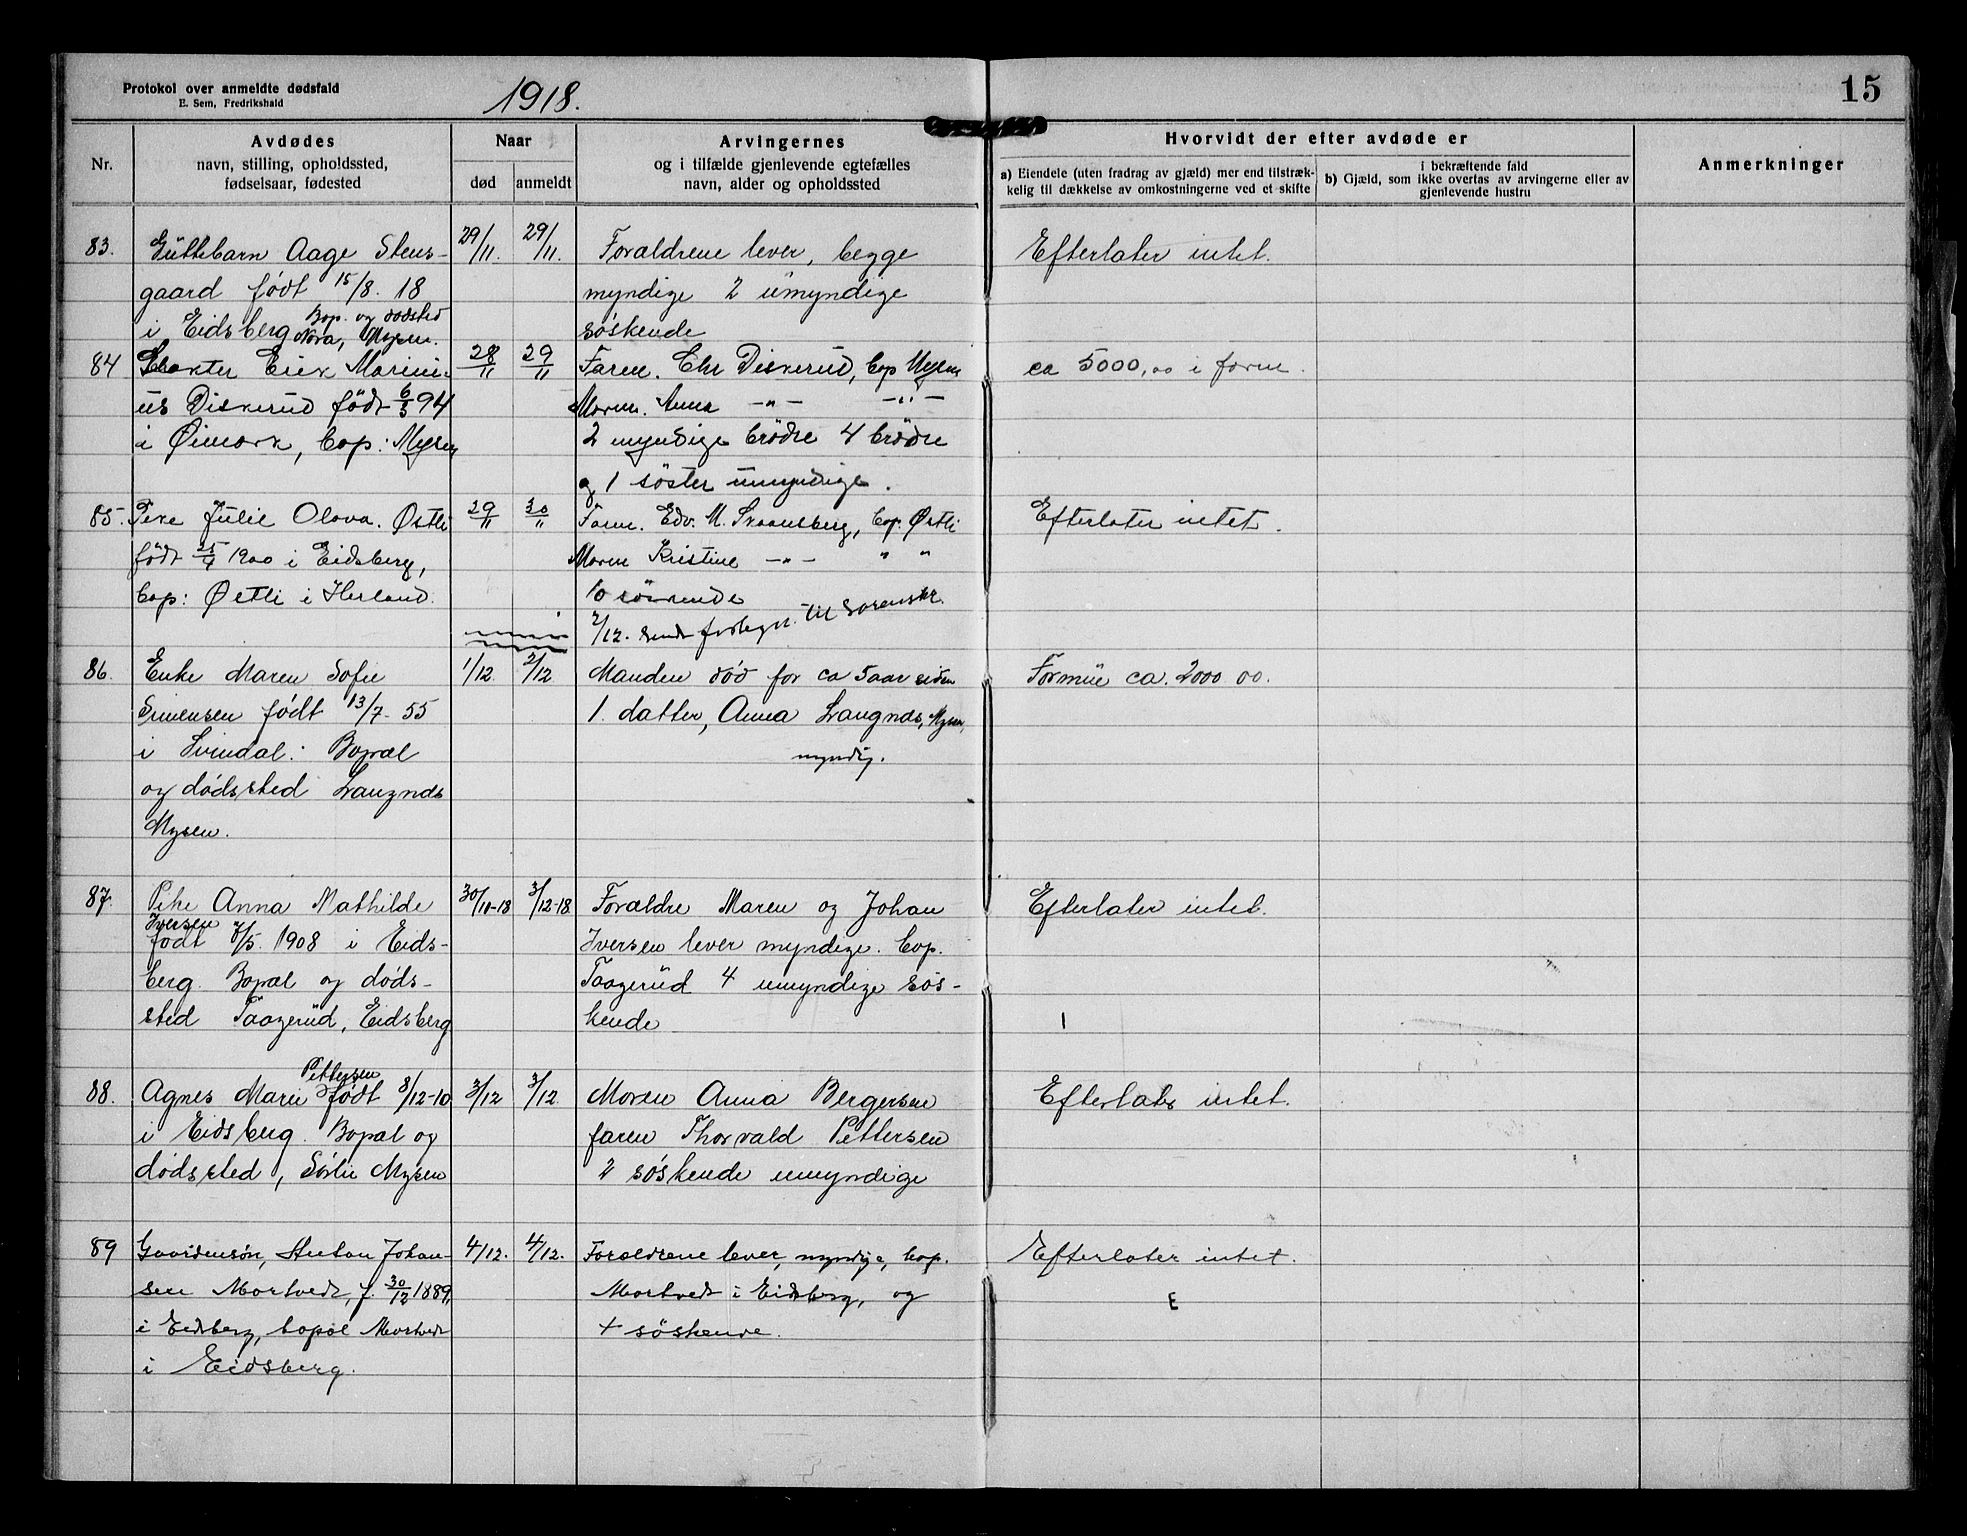 Protokol over anmeldte dødsfald
E. Sem, Fredrikshald
1918.
15
Nr.
Avdødes
navn, stilling, opholdssted,
fødselsaar, fødested
Naar
død
anmeldt
Arvingernes
og i tilfælde gjenlevende egtefælles
navn, alder og opholdssted
Hvorvidt der efter avdøde er
a) Eiendele (uten fradrag av gjæld) mer end tilstræk-
kelig til dækkelse av omkostningerne ved et skifte
i bekræftende fald
b) Gjæld, som ikke overtas av arvingerne eller av
gjenlevende hustru
Anmerkninger
83. Guttebarn Aage Stens- 29/11. 29/11. Foraldrene lever, begge Efterlater intet.
gaard født 15/8. 18 myndige 2 umyndige
i Eidsberg Bop. og dødsted søskende
Mysen.
84 Erik Marini- 28/11 29/11 Faren. Chr Diskerud, bop Mysen ca 5000,00 i form.
us Diskerud født 6/3 94 Moren. Anna -"- -"-
i Øimark, bop: Mysen 2 myndige brødre 4 brødre
og 1 søster umyndige.
85. Pike Julie Olava. Østli 29/11 30/11 Faren. Edv. M. bop. Østli Efterlater intet.
født 25/4 1900 i Eidsberg, Moren Kristine -"- " "
bop: Østli i Herland. 10 søskende
2/12. sendt til Sorenskr.
86. Enke Maren Sofie 1/12. 2/12 Manden død for ca 5 aar siden Formue ca. 2000 00.
Simensen født 13/7. 55 1. datter, Anna Langnds, Mysen,
i Svindal: Bopæl myndig.
og dødssted Langnds
Mysen.
87. Pike Anna Mathilde 30/10-18 3/12-18 Forældre Maren og Johan Efterlater intet.
Iversen
født /5. 1908 i Eids- Iversen lever myndige. bop.
berg. Bopæl og døds- Taagerud 4 umyndige søs-
sted Taagerud, Eidsberg kende
88. Agnes Marie Pettersen født 8/12-10 3/12 3/12. Moren Anna Bergersen Efterlater intet.
i Eidsberg. Bopæl og faren Thorvald Pettersen
dødssted, Sørlie Mysen 2 søskende umyndige
89 Gaardensøn, Anton Johan- 4/12. 4/12. Foraldrene lever, myndige, bop. Efterlater intet.
sen Mortvedt, f. 30/12 1889, Mortvedt i Eidsberg, og
i Eidsberg, bopæl Mortvedt 4 søskende.
i Eidsberg.